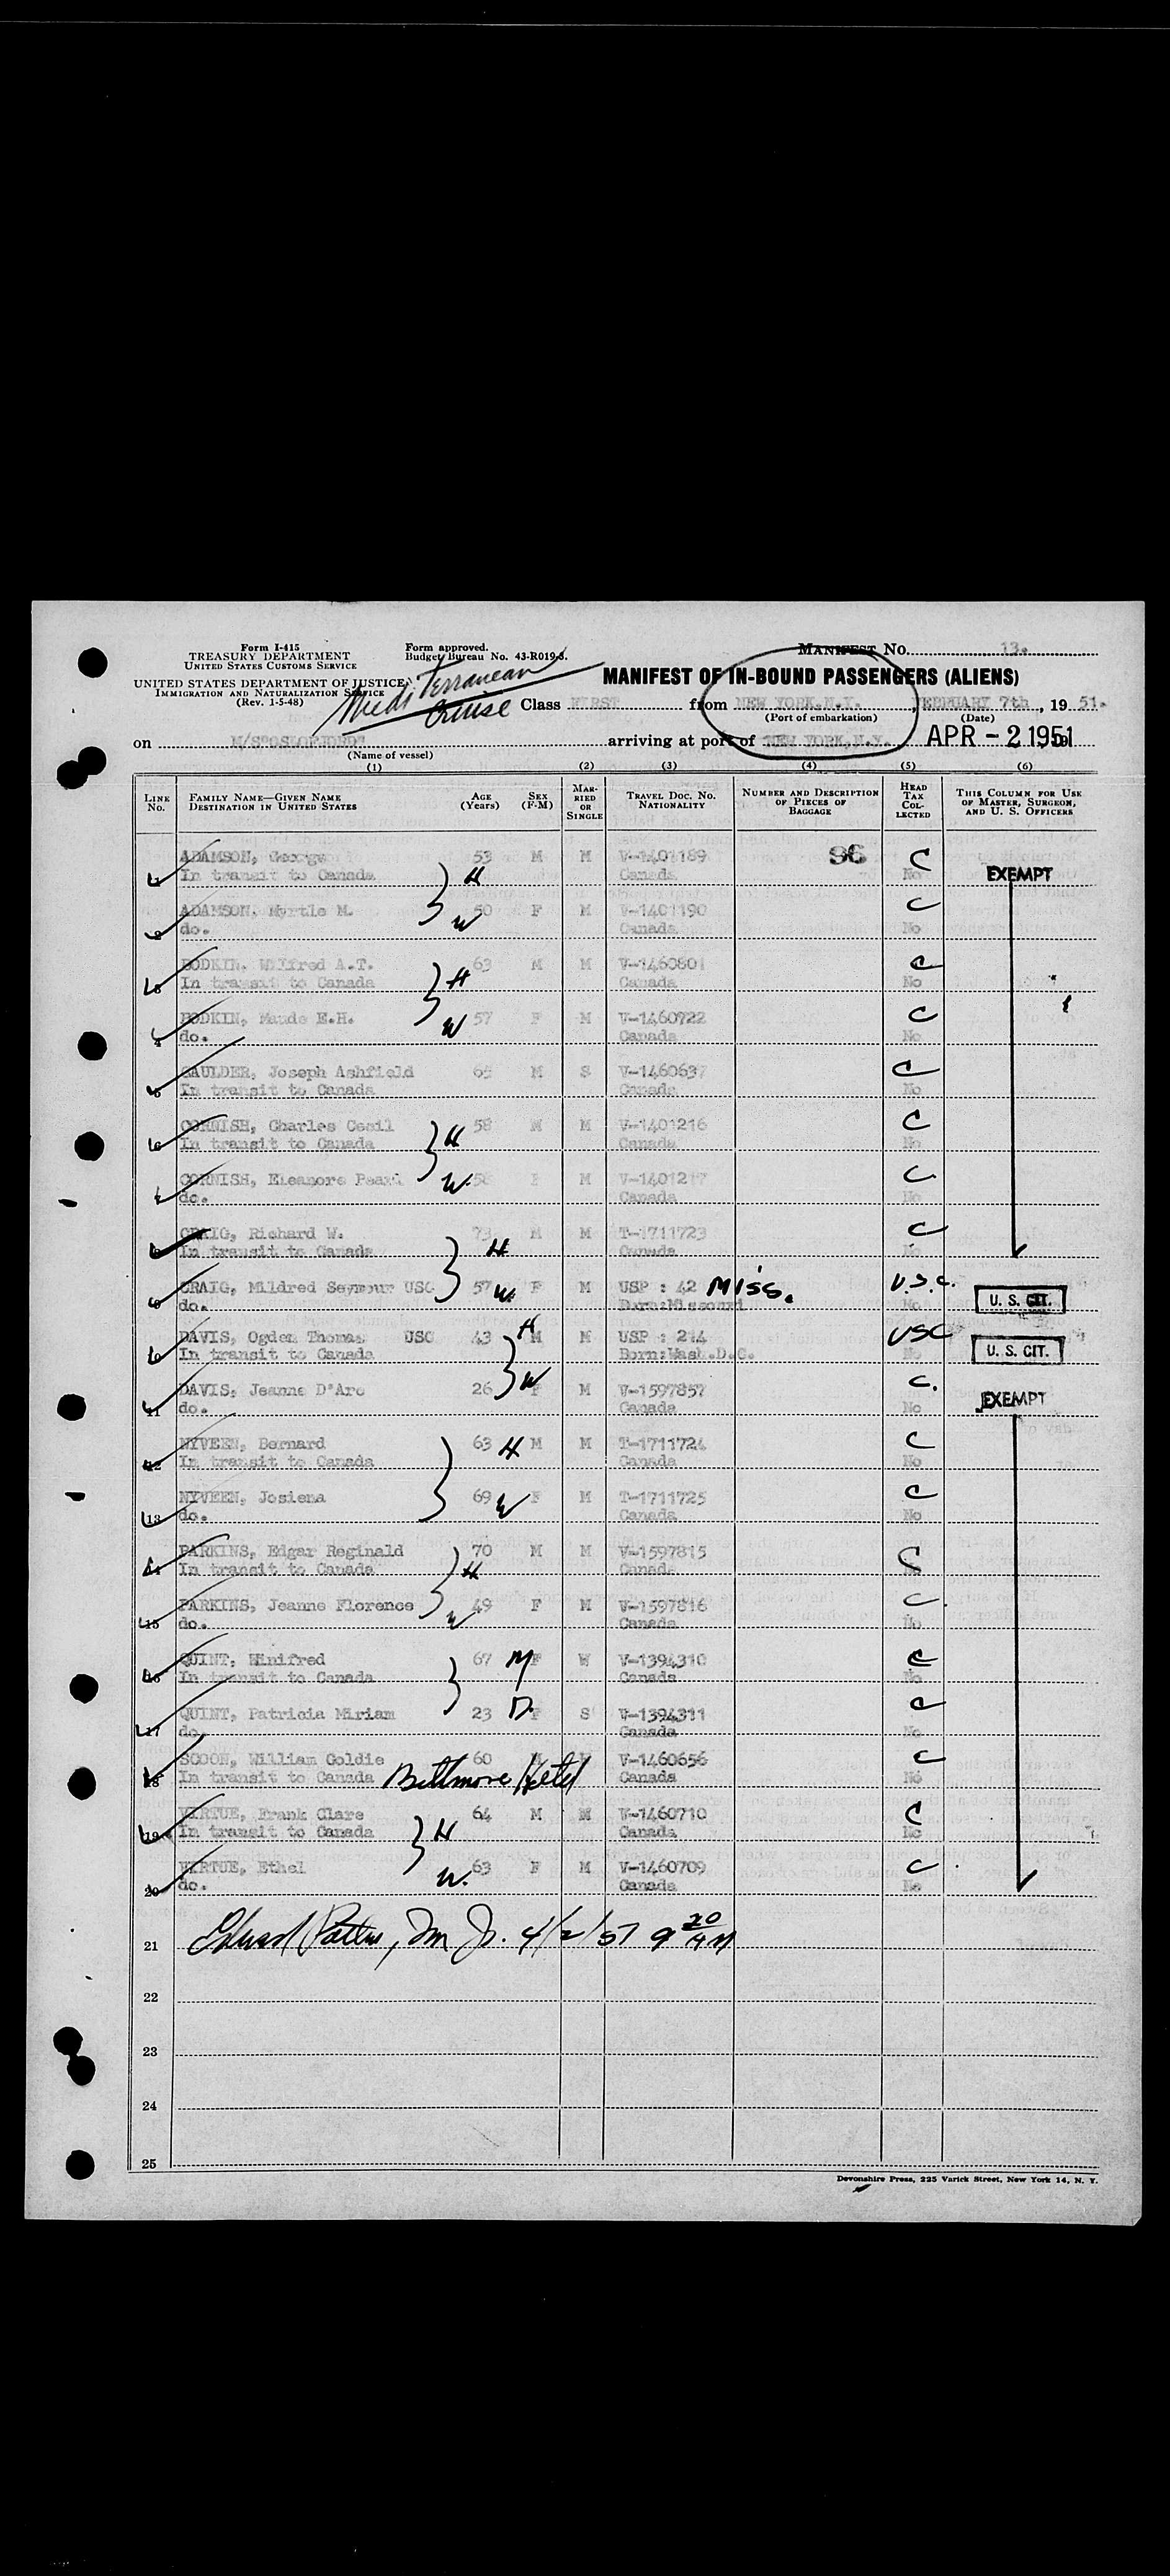 Form I-415
TREASURY DEPARTMENT
UNITED STATES CUSTOMS SERVICE
UNITED STATES DEPARTMENT OF JUSTICE
IMMIGRATION AND NATURALIZATION SERVICE
(Rev. 1-5-48)
Form approved.
Budget Bureau No. 43-R019-3.
Mediterranean
Cruise
MANIFEST No. 13.
MANIFEST OF IN-BOUND PASSENGERS (ALIENS)
Class FIRST from NEW YORK,N.Y. , FEBRUARY 7th, 19 51.
(Port of embarkation) (Date)
on M/S"OSLOFJORD" arriving at port of NEW YORK,N.Y. APR - 2 1951
(Name of vessel)
(1) (2) (3) (4) (5) (6)
LINE No. FAMILY NAME—GIVEN NAME DESTINATION IN UNITED STATES AGE (Years) SEX (F-M) MARRIED OR SINGLE TRAVEL DOC. NO. NATIONALITY NUMBER AND DESCRIPTION OF PIECES OF BAGGAGE HEAD TAX COLLECTED THIS COLUMN FOR USE OF MASTER, SURGEON, AND U. S. OFFICERS
ADAMSON, George 53 M M V-1401189 96 C
1 In transit to Canada H Canada No EXEMPT
ADAMSON, Myrtle M. 50 F M V-1401190 C
2 do. W Canada No
BODKIN, Wilfred A.T. 63 M M V-1460801 C
3 In transit to Canada H Canada No
BODKIN, Maude E.H. 57 F M V-1460722 C
4 do. W Canada No
CAULDER, Joseph Ashfield 65 M S V-1460637 C
5 In transit to Canada Canada No
CORNISH, Charles Cecil 58 M M V-1401216 C
6 In transit to Canada H Canada No
CORNISH, Eleanore Pearl 58 F M V-1401217 C
7 do. W Canada No
CRAIG, Richard W. 73 M M T-1711723 C
8 In transit to Canada H Canada No
CRAIG, Mildred Seymour USC 57 W F M USP : 42 Miss. U.S.C.
9 do. Born:Missouri No U. S. CIT.
DAVIS, Ogden Thomas USC 43 H M M USP : 214 USC
10 In transit to Canada Born:Wash.D.C. No U. S. CIT.
DAVIS, Jeanne D'Arc 26 W F M V-1597857 C.
11 do. Canada No EXEMPT
NYVEEN, Bernard 63 H M M T-1711724 C
12 In transit to Canada Canada No
NYVEEN, Josiena 69 W F M T-1711725 C
13 do. Canada No
PARKINS, Edgar Reginald 70 M M V-1597815 C
14 In transit to Canada H Canada No
PARKINS, Jeanne Florence 49 F M V-1597816 C
15 do. W Canada No
QUINT, Winifred 67 M F W V-1394310 C
16 In transit to Canada Canada No
QUINT, Patricia Miriam 23 D. F S V-1394311 C
17 do. Canada No
SCOON, William Goldie 60 M V-1460656 C
18 In transit to Canada Biltmore Hotel Canada No
VIRTUE, Frank Clare 64 M M V-1460710 C
19 In transit to Canada H Canada No
VIRTUE, Ethel 63 F M V-1460709 C
20 do. W. Canada No
21 4/2/51 9 20 AM
22
23
24
25
Devonshire Press, 225 Varick Street, New York 14, N. Y.